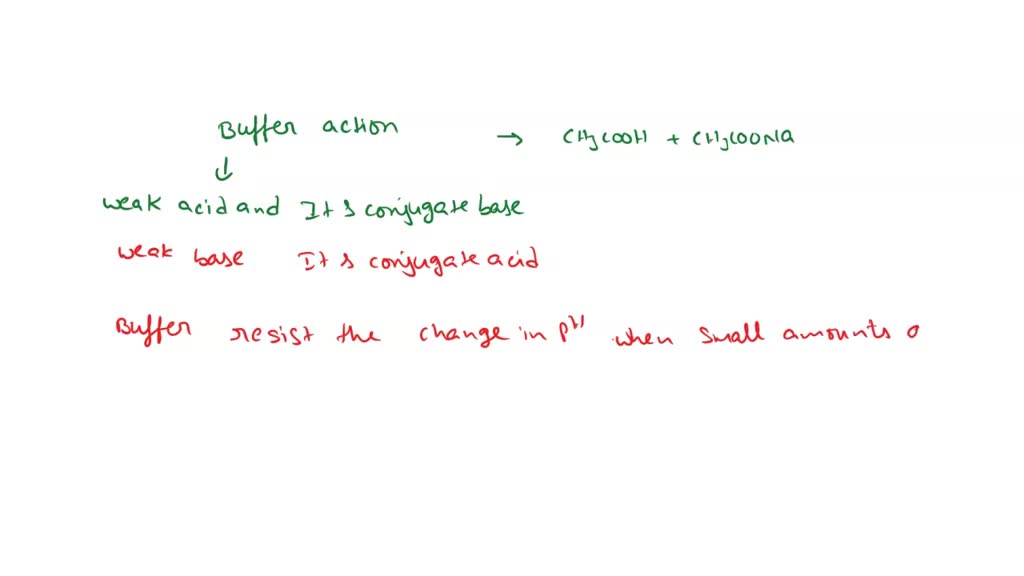 Buffer action → CH3COOH + CH3COONa
↓
weak acid and It s conjugate base
weak base It s conjugate acid
Buffer resist the change in pH when small amounts o